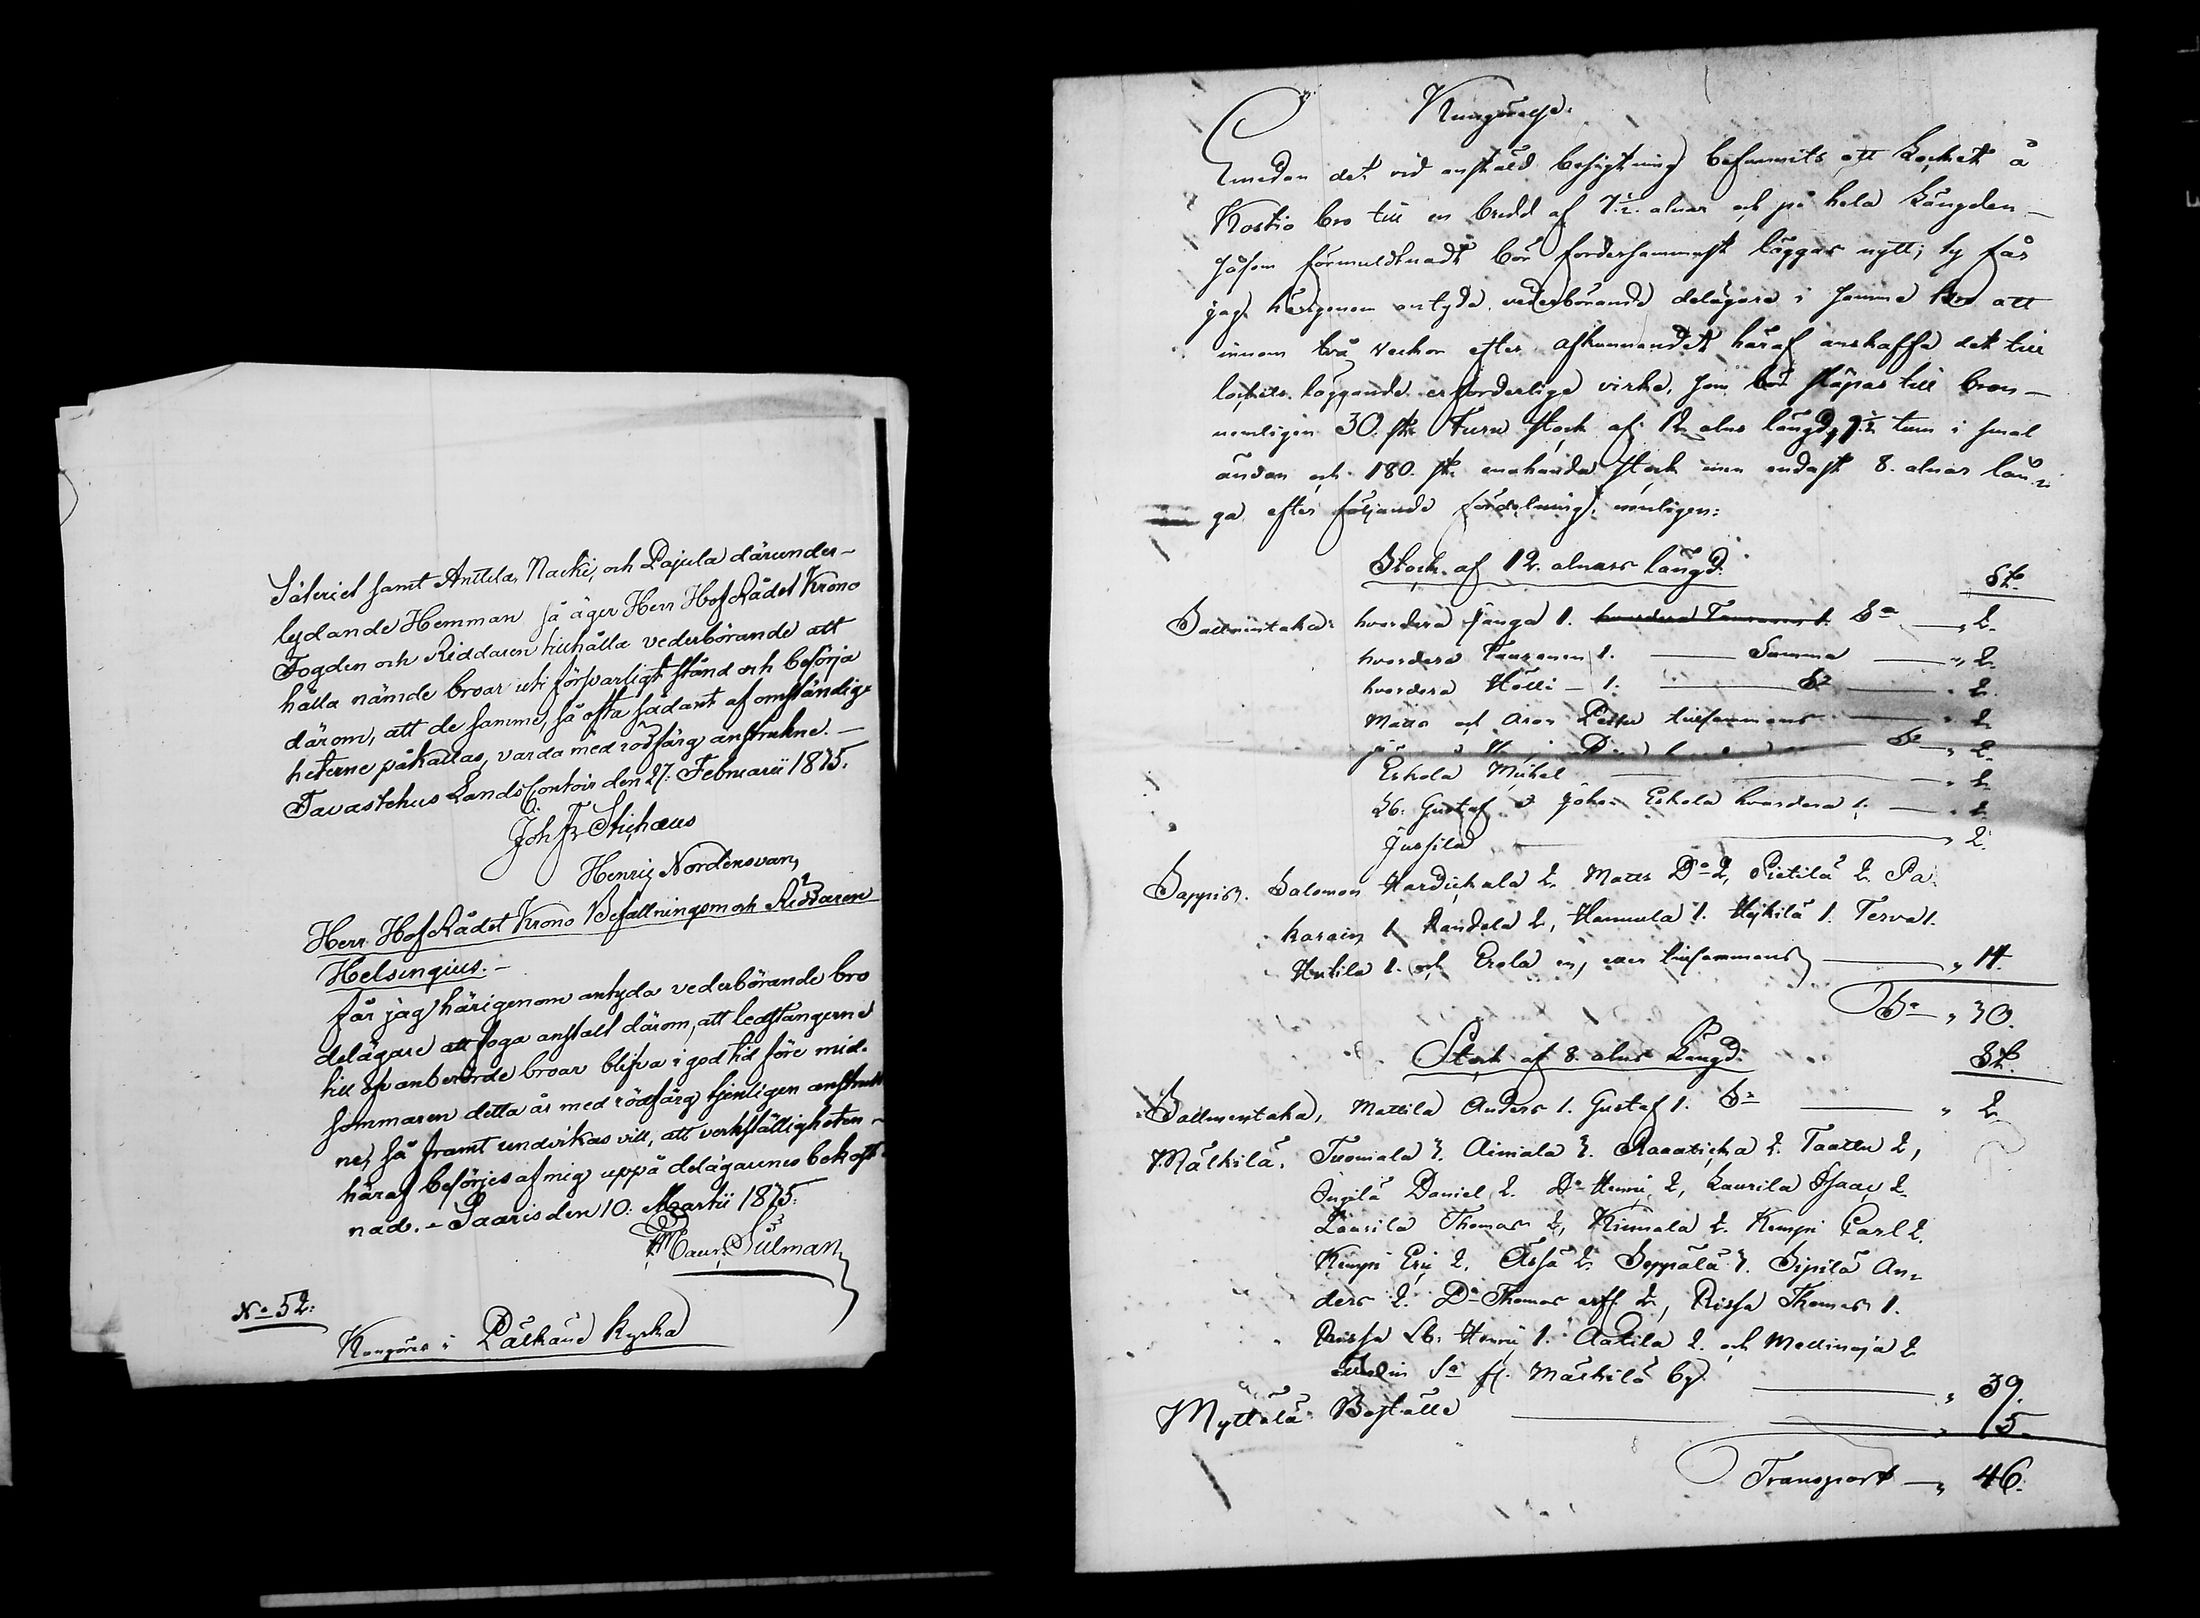 Säteriet samt Anttila, Naeki, och Pajula därunder-
lydande Hemman så äger Herr HofRådet Krono
Fogden och Riddaren tillhålla vederbörande att
hålla nämde broar uti försvarligt stånd och besörja
därom, att de samme, så ofta sådant af omständig-
heterne påkallas, varda med rödfärg anstrukne. -
Tavastehus Lands Contoir den 27. Februarii 1825.
Joh Fr Stichæus
Henric Nordensvan,
Herr HofRådet Krono Befallningsm och Riddaren
Helsingius. -
får jag härigenom antyda vederbörande bro
delägare att foga anstalt därom, att ledstängerne
till ofvanberörde broar blifva i god tid före mid-
sommaren detta år med rödfärg tjenligen anstruk
ne, så framt undvikas vill, att verkställigheten -
häraf besörjes af mig uppå delägarnes bekost-
nad. - Saaris den 10. Martii 1825.
Maur. Silman
No 52:
Kungöres i Pälkäne Kyrka
Kungörelse.
Emedan det vid anstäld besigtning befunnits att Locket å
Kostio bro till en bredd af 7½ alnar och på hela Längden -
såsom förmultnadt bör fordersammast läggas nytt; ty får
jag härigenom antyda vederbörande delägare i samme Bro att
innom två veckor efter afkunnandet häraf anskaffa det till
lockets läggande erforderlige virke, som bör släpas till bron -
nemligen 30. st. Furu stock af 12 alns längd, 9½ tum i smal
ändan och 180. st. enahanda stock men endast 8. alnar län-
ga efter följande fördelning, nemligen:
Stock af 12. alnars längd. St.
Sallmentaka: hvardera Janga 1. hvardera Tauranen 1. Sa " 2.
hvardera Tauranen 1. Summa " 2.
hvardera Hölli - 1. Sa " 2.
Matts och Aron Peltu tillsammans " 2.
Sa " 2.
Eskola Michel " 2.
Lb: Gustaf d Johan Eskola hvardera 1. " 2.
Jussila " 2.
Sappis. Salomon Hardickala 2. Matts Do 2, Pietilä 2. Pa-
karain 1. Randala 2, Hannula 1. Hykilä 1. Terva 1.
Uutila 1. och Erola en, eller tillsammans " 14.
Sa " 30.
Stock af 8. alns Längd: St.
Sallmentaka, Mattila Anders 1. Gustaf 1. Sa " 2.
Mälkilä. Tuomala 3. Aimala 3. Raaaticka 2. Taattu 2,
Ingilä Daniel 2. Do Henric 2, Laurila Isaac 2.
Laurila Thomas 2, Kinnala 2. Kemppi Carl 2.
Kemppi Eric 2, Ässä 2. Seppälä 3. Sipilä An-
ders 2. Do Thomas arff. 2, Rissa Thomas 1.
Rissa Lb: Henric 1. Aatila 2. och Mellinoja 2.
eller in Sa fr. Mälkilä by. " 39.
Myttälä Boställe " 5.
Transport " 46.